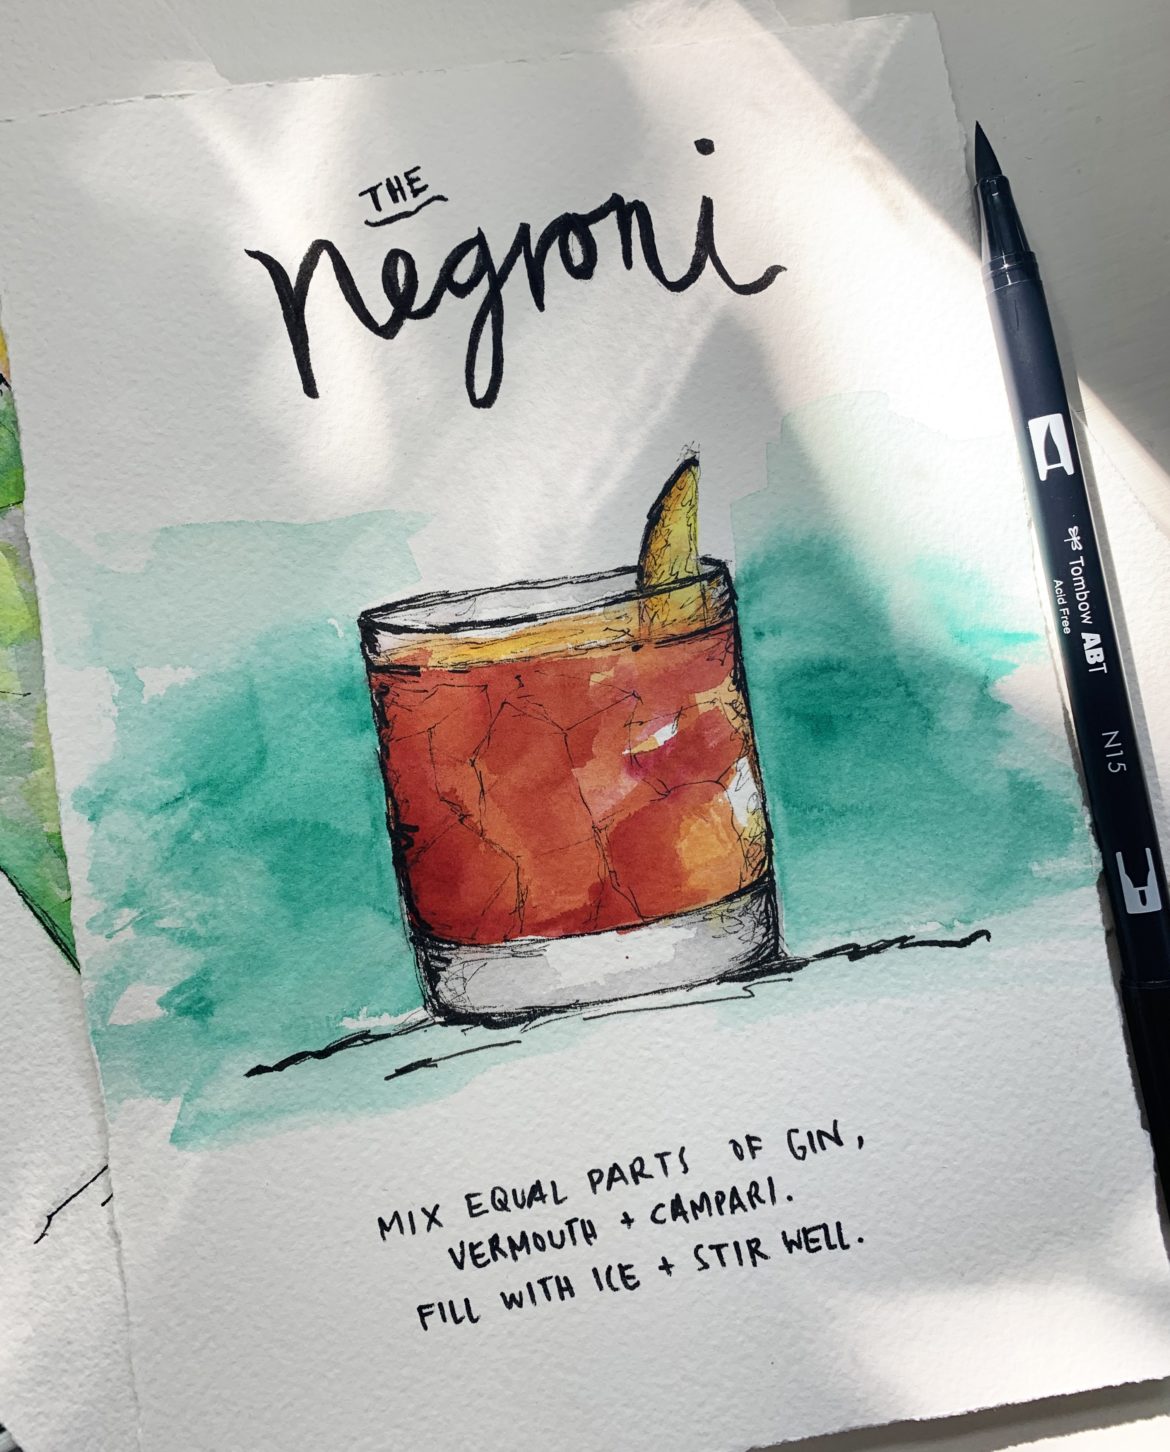 THE
Negroni
MIX EQUAL PARTS OF GIN,
VERMOUTH + CAMPARI.
FILL WITH ICE + STIR WELL.
Tombow ABT
Acid Free
N15